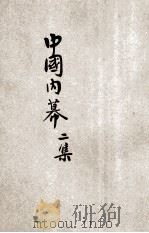 中國內幕二集